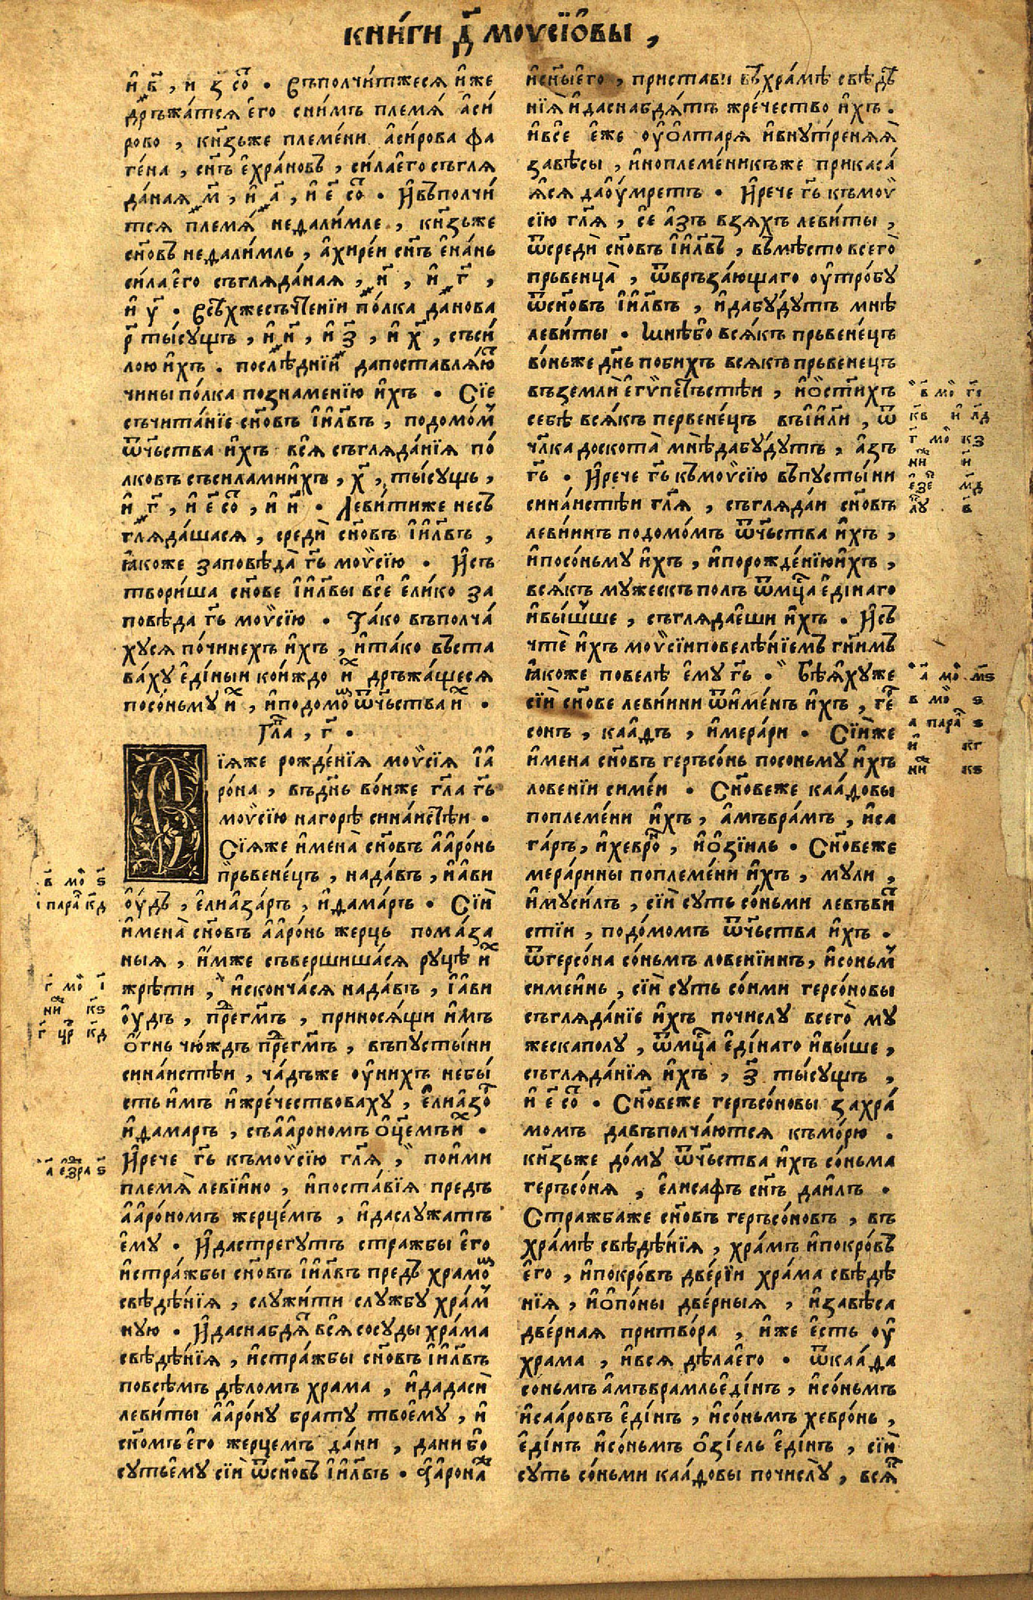 книги д҃ моѵсїѡвы ,
и҆ в҃ , и҆ з҃ со҃ . Съполчи́тжеся и҆же
дръжа́тся е҆го сни́мъ племѧ̀ а҆си́
рово , кнѧ҃зьже племе́ни а҆си́рова фа
ге́на , сн҃ъ е҆хра́новъ , си́лаего съгля
да́ная м҃ , и҆ а҃ , и҆ е҃ со҃ . И҆въполчи́
тся племѧ̀ недали́мле , кнѧ҃зьже
сн҃овъ недали́мль , а҆хире́и сн҃ъ е҆на́нь
сила е҆го съгляда́ная , н҃ , и҆ г҃ ,
и҆ у҃ . Съчте́нїи по́лка да́нова
р҃ ты́сущъ , и҆ н҃ , и҆ з҃ , и҆ х҃ , съси́
лою и҆хъ . послѣ́днїи дапоставлѧ́ю
чины по́лка познаменїю и҆хъ . Сїе
съчита́нїе сн҃овъ і҆и҃лвъ , подомо́м
ѿчьства и҆хъ вся съгляда́нїя по́
лковъ съсиламии҆хъ , х҃ , ты́сущь ,
и҆ г҃ , и҆ е҃ со҃ , и҆ н҃ . Леви́тиже несъ
гляда́шася , средѝ сн҃овъ і҆и҃лвъ ,
ꙗ҆коже заповѣ́да гь҃ моѵсїю . И҆съ
твори́ша сн҃ове і҆и҃лвы все е҆ли́ко за
повѣ́да гь҃ моѵсїю . Та́ко въполча́
хуся по́чинехъ и҆хъ , и҆та́ко въста
ва́ху е҆ди́ныи ко́иждо и҆х дръжа́щеся
посо́ньму и҆х , и҆подомо́ ѿчьства и҆х .
Гла҃ , г҃ .
Сїѧ́же рожде́нїя моѵсїя і҆ а҆
ро́на , въдн҃ь во́нже гл҃а гь҃
моѵсїю нагорѣ̀ сина́истѣи .
Сїѧ́же и҆мена̀ сн҃овъ а҆аро́нь
прьвене́цъ , нада́въ , и҆ а҆ви
о҆у́дъ , е҆лиа҆за́ръ , и҆дама́ръ . Сїѝ
и҆мена̀ сн҃овъ а҆аро́нь жерцъ пома́за
ныя , и҆́мже съвершиша́ся ру́цѣ и҆х
жрѣ́ти , и҆сконча́ся нада́въ , і҆ а҆ви
о҆у́дъ , пр҇егмъ , принося́щи и҆мъ
о҆́гнь чю́ждъ пр҇егмъ , въпусты́ни
сина́истѣи , ча́дъже оу҆ни́хъ небы́
сть и҆мъ и҆жре́чествоваху , е҆лиа҆зо
и҆дамаръ , съа҆а́рономъ ѻ҆ц҃емъи҆х .
И҆рече гь҃ къмоѵсїю гл҃ѧ , пои́ми
племѧ̀ леви́ино , и҆поста́вїя предъ
а҆аро́номъ жерце́мъ , и҆даслужатъ
е҆му . И҆дастрегутъ стра́жбы е҆го
и҆стра́жбы сн҃овъ і҆и҃лвъ предъ храмо
свѣдѣ́нїя , служи́ти слу́жбу хра́м
ную . И҆даснабдѧ́ вся сосу́ды хра́ма
свѣдѣ́нїя , и҆стра́жбы сн҃овъ і҆и҃лвъ
повсѣ́мъ дѣломъ храма , и҆дадасѝ
леви́ты а҆аро́ну бра́ту твое́му , и҆
сн҃омъ е҆го жерцемъ да́ни , дани бо
сутье́му сїѝ ѿсн҃овъ і҆и҃лвъ . а҆аро́на
и҆сн҃ы е҆го , пристави въхра́мѣ свѣдѣ
нїя и҆даснабдѧ́тъ жре́чество и҆хъ .
и҆вѐ е҆же оу҆ѻ҆лтаря̀ и҆вну́треняя
завѣ́сы , и҆ноплеме́никъже прикаса́
яйся дао҆у́мретъ . И҆рече гь҃ къмоѵ
сїю гл҃я , се а҆́зъ взя́хъ леви́ты ,
ѿсреди сн҃овъ і҆и҃лвъ , въмѣ́сто всего̀
прьвенца̀ , ѿвръза́ющаго оу҆тро́бу
ѿсн҃овъ і҆и҃лвъ , и҆дабу́дутъ мнѣ
леви́ты . Мнѣ́бо вся́къ прьвене́цъ
во́ньже дн҃ь поби́хъ вся́къ прьвенецъ
въземлѝ е҆гѵ́петьстѣи , и҆ѡ҆сти́хъ
себѣ вся́къ первене́цъ въі҆и҃ли , ѿ
чл҃ка доскота̀ мнѣ́дабу́дутъ , а҆зъ
гь҃ . И҆рече гь҃ къмоѵсїю въпусты́ни
сина́истѣи гл҃я , съгляда́и сн҃овъ
левиинъ подомо́мъ ѿчьства и҆хъ ,
и҆посо́ньму и҆хъ , и҆порожде́нїюи҆хъ ,
вся́къ му́жескъ полъ ѿмц҃а е҆ди́наго
и҆вы́шше , съгляда́еши и҆хъ . И҆съ
чтѐ и҆хъ моѵсїи повелѣ́нїемъ гн҃имъ
ꙗ҆коже повелѣ е҆му гь҃ . Бѣя́хуже
сїѝ сн҃ове леви́ини ѿи҆ме́нъ и҆хъ , ге
сонъ , каа́дъ , и҆мера́ри . Сїѝже
и҆мена сн҃овъ геръсо́нь посоньму и҆хъ
ловени́и симе́и . Сн҃овеже каа́довы
поплеме́ни и҆хъ , а҆мъбра́мъ , и҆са
га́ръ , и҆хевро́ , и҆ѻ҆зїиль . Сн҃овеже
мера́рины поплеме́ни и҆хъ , мули ,
и҆муси́лъ , сїѝ суть со́ньми левъви
стїи , подо́момъ ѿчьства и҆хъ .
ѿгерсо́на со́ньмъ ловени́инъ , и҆соньм
симе́инь , сїѝ суть со́ими герсо́новы
съгляда́нїе и҆хъ почислу всего̀ му
жескаполу , ѿмц҃а е҆ди́наго и҆вы́ше ,
съгляда́нїя и҆хъ , з҃ ты́сущъ ,
и҆ е҃ со҃ . Сн҃овеже геръсо́новы захра́
момъ давъполча́ются къмо́рю .
кнѧ҃зьже до́му ѿчьства и҆хъ со́ньма
геръсо́ня , е҆лисафъ сн҃ъ даилъ .
Стражбаже сн҃овъ геръсо́новъ , въ
хра́мѣ свѣдѣ́нїя , хра́мъ и҆покро́въ
е҆го , и҆покро́въ две́рїи храма свѣдѣ
нїя , и҆ѻ҆по́ны две́рныя , и҆завѣ́са
две́рная притво́ра , и҆же е҆сть оу҆
храма , и҆вся дѣ́лае҆го . ѿкаа́да
соньмъ а҆мъбрамльѐди́нъ , и҆со́ньмъ
и҆саа́ровъ е҆ди́нъ , и҆со́ньмъ хевро́нь ,
е҆ди́нъ и҆со́ньмъ ѻ҆зїель е҆ди́нъ , сїѝ
суть со́ньми каа́довы почислу , вся
в҃ мо҇ ѕ҃
і҆ пара҇ кд҃
г҃ мо҇ і҃
ни҃ кѕ҃
г҃ цр҇ кд҃
а҃ е҆зра ѕ҃
в҃ мо҇ гі҃
кв҃ и҆ лд҃
г҃ мо҇ кз
ни҃ и҃
е҆зе҇ мд
лу҃ в҃
а҃ мо҇ мѕ҃
в мо҇ ѕ
а пара҇ ѕ
и҃ кг
ни҃ кѕ